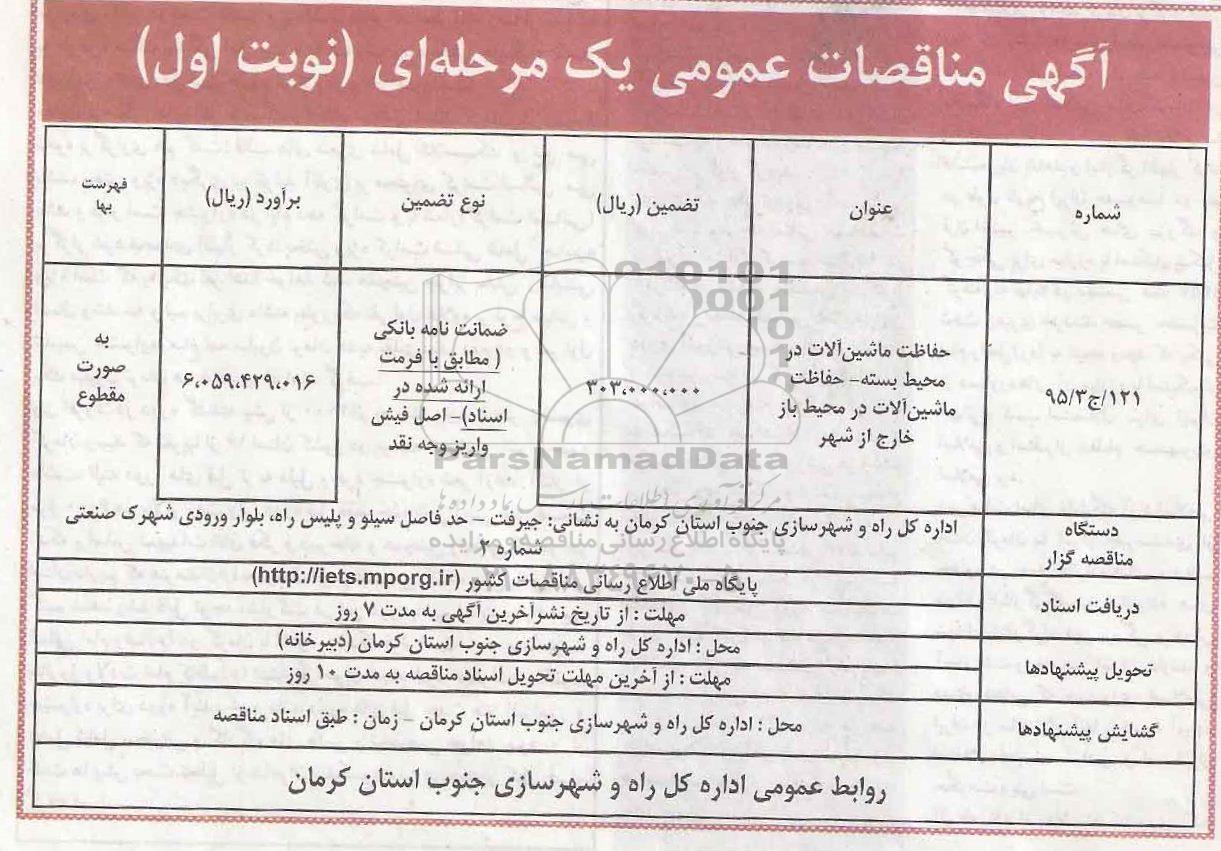 آگهی مناقصات عمومی یک مرحله‌ای (نوبت اول)
شماره
عنوان
تضمین (ریال)
نوع تضمین
برآورد (ریال)
فهرست
بها
۱۲۱/ج۹۵/۳
حفاظت ماشین‌آلات در
محیط بسته- حفاظت
ماشین‌آلات در محیط باز
خارج از شهر
۳۰۳،۰۰۰،۰۰۰
ضمانت نامه بانکی
( مطابق با فرمت
ارائه شده در
اسناد)- اصل فیش
واریز وجه نقد
۶،۰۵۹،۴۲۹،۰۱۶
به
صورت
مقطوع
ParsNamadData
پایگاه اطلاع رسانی مناقصه و مزایده
دستگاه
مناقصه گزار
اداره کل راه و شهرسازی جنوب استان کرمان به نشانی: جیرفت – حد فاصل سیلو و پلیس راه، بلوار ورودی شهرک صنعتی
شماره ۲
دریافت اسناد
پایگاه ملی اطلاع رسانی مناقصات کشور (http://iets.mporg.ir)
مهلت : از تاریخ نشر آخرین آگهی به مدت ۷ روز
تحویل پیشنهادها
محل : اداره کل راه و شهرسازی جنوب استان کرمان (دبیرخانه)
مهلت : از آخرین مهلت تحویل اسناد مناقصه به مدت ۱۰ روز
گشایش پیشنهادها
محل : اداره کل راه و شهرسازی جنوب استان کرمان – زمان : طبق اسناد مناقصه
روابط عمومی اداره کل راه و شهرسازی جنوب استان کرمان